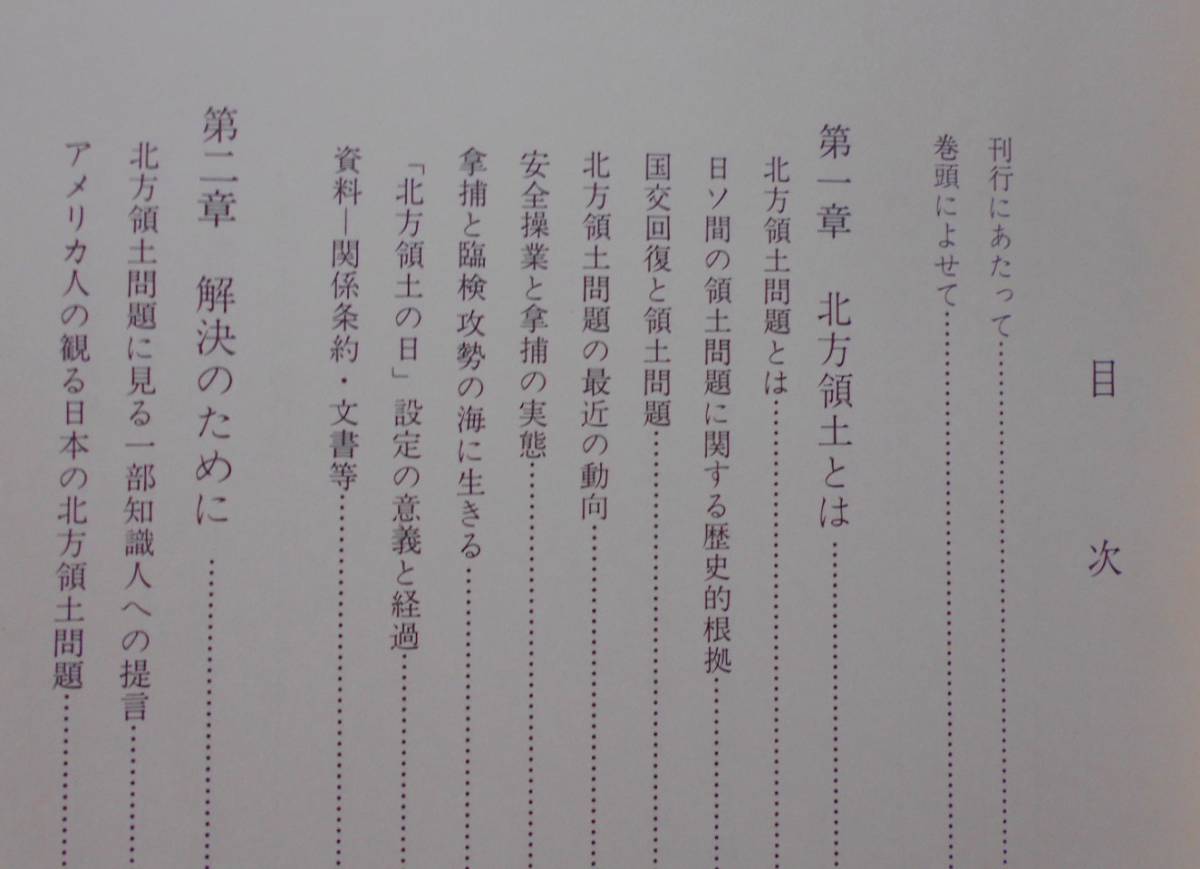 目次
刊行にあたって…………………………
巻頭によせて…………………………
第一章 北方領土とは…………………………
北方領土問題とは…………………………
日ソ間の領土問題に関する歴史的根拠…………………………
国交回復と領土問題…………………………
北方領土問題の最近の動向…………………………
安全操業と拿捕の実態…………………………
拿捕と臨検攻勢の海に生きる…………………………
「北方領土の日」設定の意義と経過…………………………
資料―関係条約・文書等…………………………
第二章 解決のために…………………………
北方領土問題に見る一部知識人への提言…………………………
アメリカ人の観る日本の北方領土問題…………………………